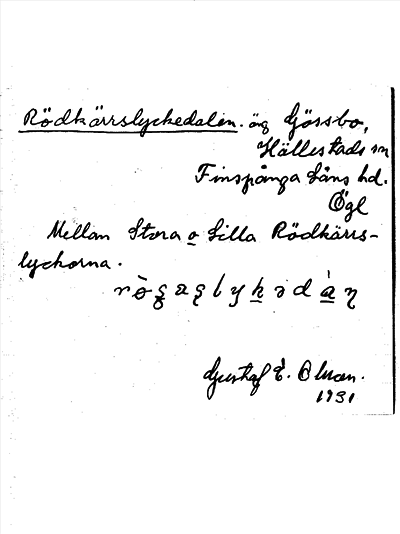 Rödkärrslyckedalen. äng Gössbo,
Hällestads sn
Finspånga läns hd.
Ögl
Mellan Stora o Lilla Rödkärrs-
lyckorna.
Gustaf E.
1931